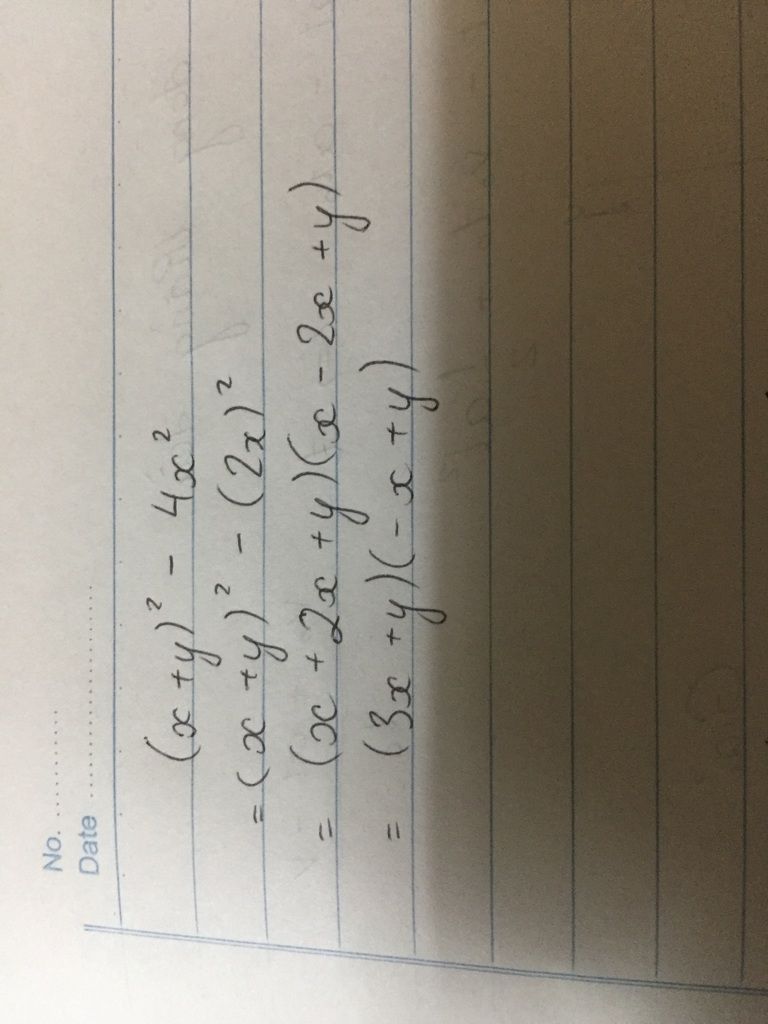 No. ..............
Date ..........................
(x+y)² - 4x²
=(x+y)² - (2x)²
= (x+2x+y)(x-2x+y)
= (3x+y)(-x+y)